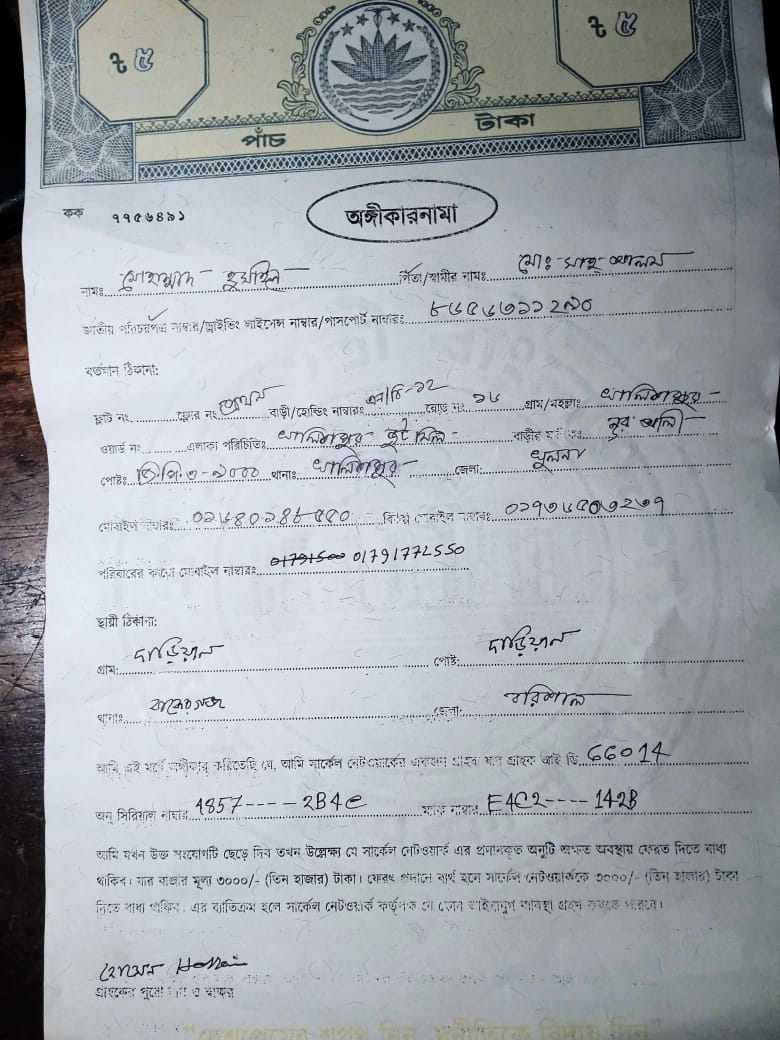 ৳ ৫ ৳ ৫
পাঁচ টাকা
কক ৭৭৫৬৪৯১ অঙ্গীকারনামা
নামঃ মোহাম্মাদ পিতা/স্বামীর নামঃ মোঃ
জাতীয় পরিচয়পত্র নাম্বার/ড্রাইভিং লাইসেন্স নাম্বার/পাসপোর্ট নাম্বারঃ
বর্তমান ঠিকানা:
ফ্লাট নং ফ্লোর নং বাড়ী/হোল্ডিং নাম্বারঃ এন/বি-১২ রোড নং ১৬ গ্রাম/মহল্লাঃ খালিশপুর
ওয়ার্ড নং এলাকা পরিচিতিঃ খালিশপুর বাড়ীর নুর আলী
পোষ্টঃ জি.পি.ও-৯০০০ থানাঃ খালিশপুর জেলা: খুলনা
মোবাইল নাম্বারঃ
পরিবারের মোবাইল নাম্বারঃ 01791772550
স্থায়ী ঠিকানা:
গ্রাম: দাড়িয়াল পোষ্ট: দাড়িয়াল
থানাঃ বাকেরগঞ্জ জেলা: বরিশাল
আমি এই মর্মে অঙ্গীকার করিতেছি যে, আমি সার্কেল নেটওয়ার্কের একজন গ্রাহক যার গ্রাহক আই ডি 66014
অনু সিরিয়াল নাম্বার 4857----2B4e ম্যাক নাম্বার E4C2----142B
আমি যখন উক্ত সংযোগটি ছেড়ে দিব তখন উল্লেক্ষ্য যে সার্কেল নেটওয়ার্ক এর প্রদানকৃত অনুটি অক্ষত অবস্থায় ফেরত দিতে বাধ্য
থাকিব। যার বাজার মূল্য ৩০০০/- (তিন হাজার) টাকা। ফেরৎ প্রদানে ব্যর্থ হলে সার্কেল নেটওয়ার্ককে ৩০০০/- (তিন হাজার) টাকা
দিতে বাধ্য থাকিব। এর ব্যতিক্রম হলে সার্কেল নেটওয়ার্ক কর্তৃপক্ষ যে কোন আইনানুগ ব্যবস্থা গ্রহন করতে পারবে।
Hossain
গ্রাহকের পুরো নাম ও স্বাক্ষর